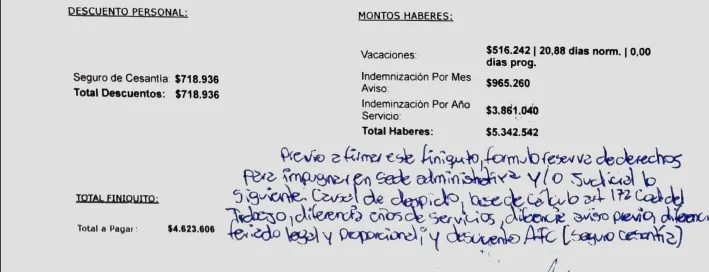 DESCUENTO PERSONAL:
Seguro de Cesantia: $718.936
Total Descuentos: $718.936
MONTOS HABERES:
Vacaciones: $516.242 | 20,88 dias norm. | 0,00
dias prog.
Indemnización Por Mes
Aviso: $965.260
Indeminzación Por Año
Servicio: $3.861.040
Total Haberes: $5.342.542
Previo a firmar este finiquito, formulo reserva de derechos
para impugnar en sede administrativa y/o Judicial lo
siguiente: Causal de despido, base de cálculo art 172 Cod del
Trabajo, diferencia años de servicios, diferencia aviso previo, diferencia
feriado legal y proporcional, y descuento AFC (seguro cesantía)
TOTAL FINIQUITO:
Total a Pagar: $4.623.606